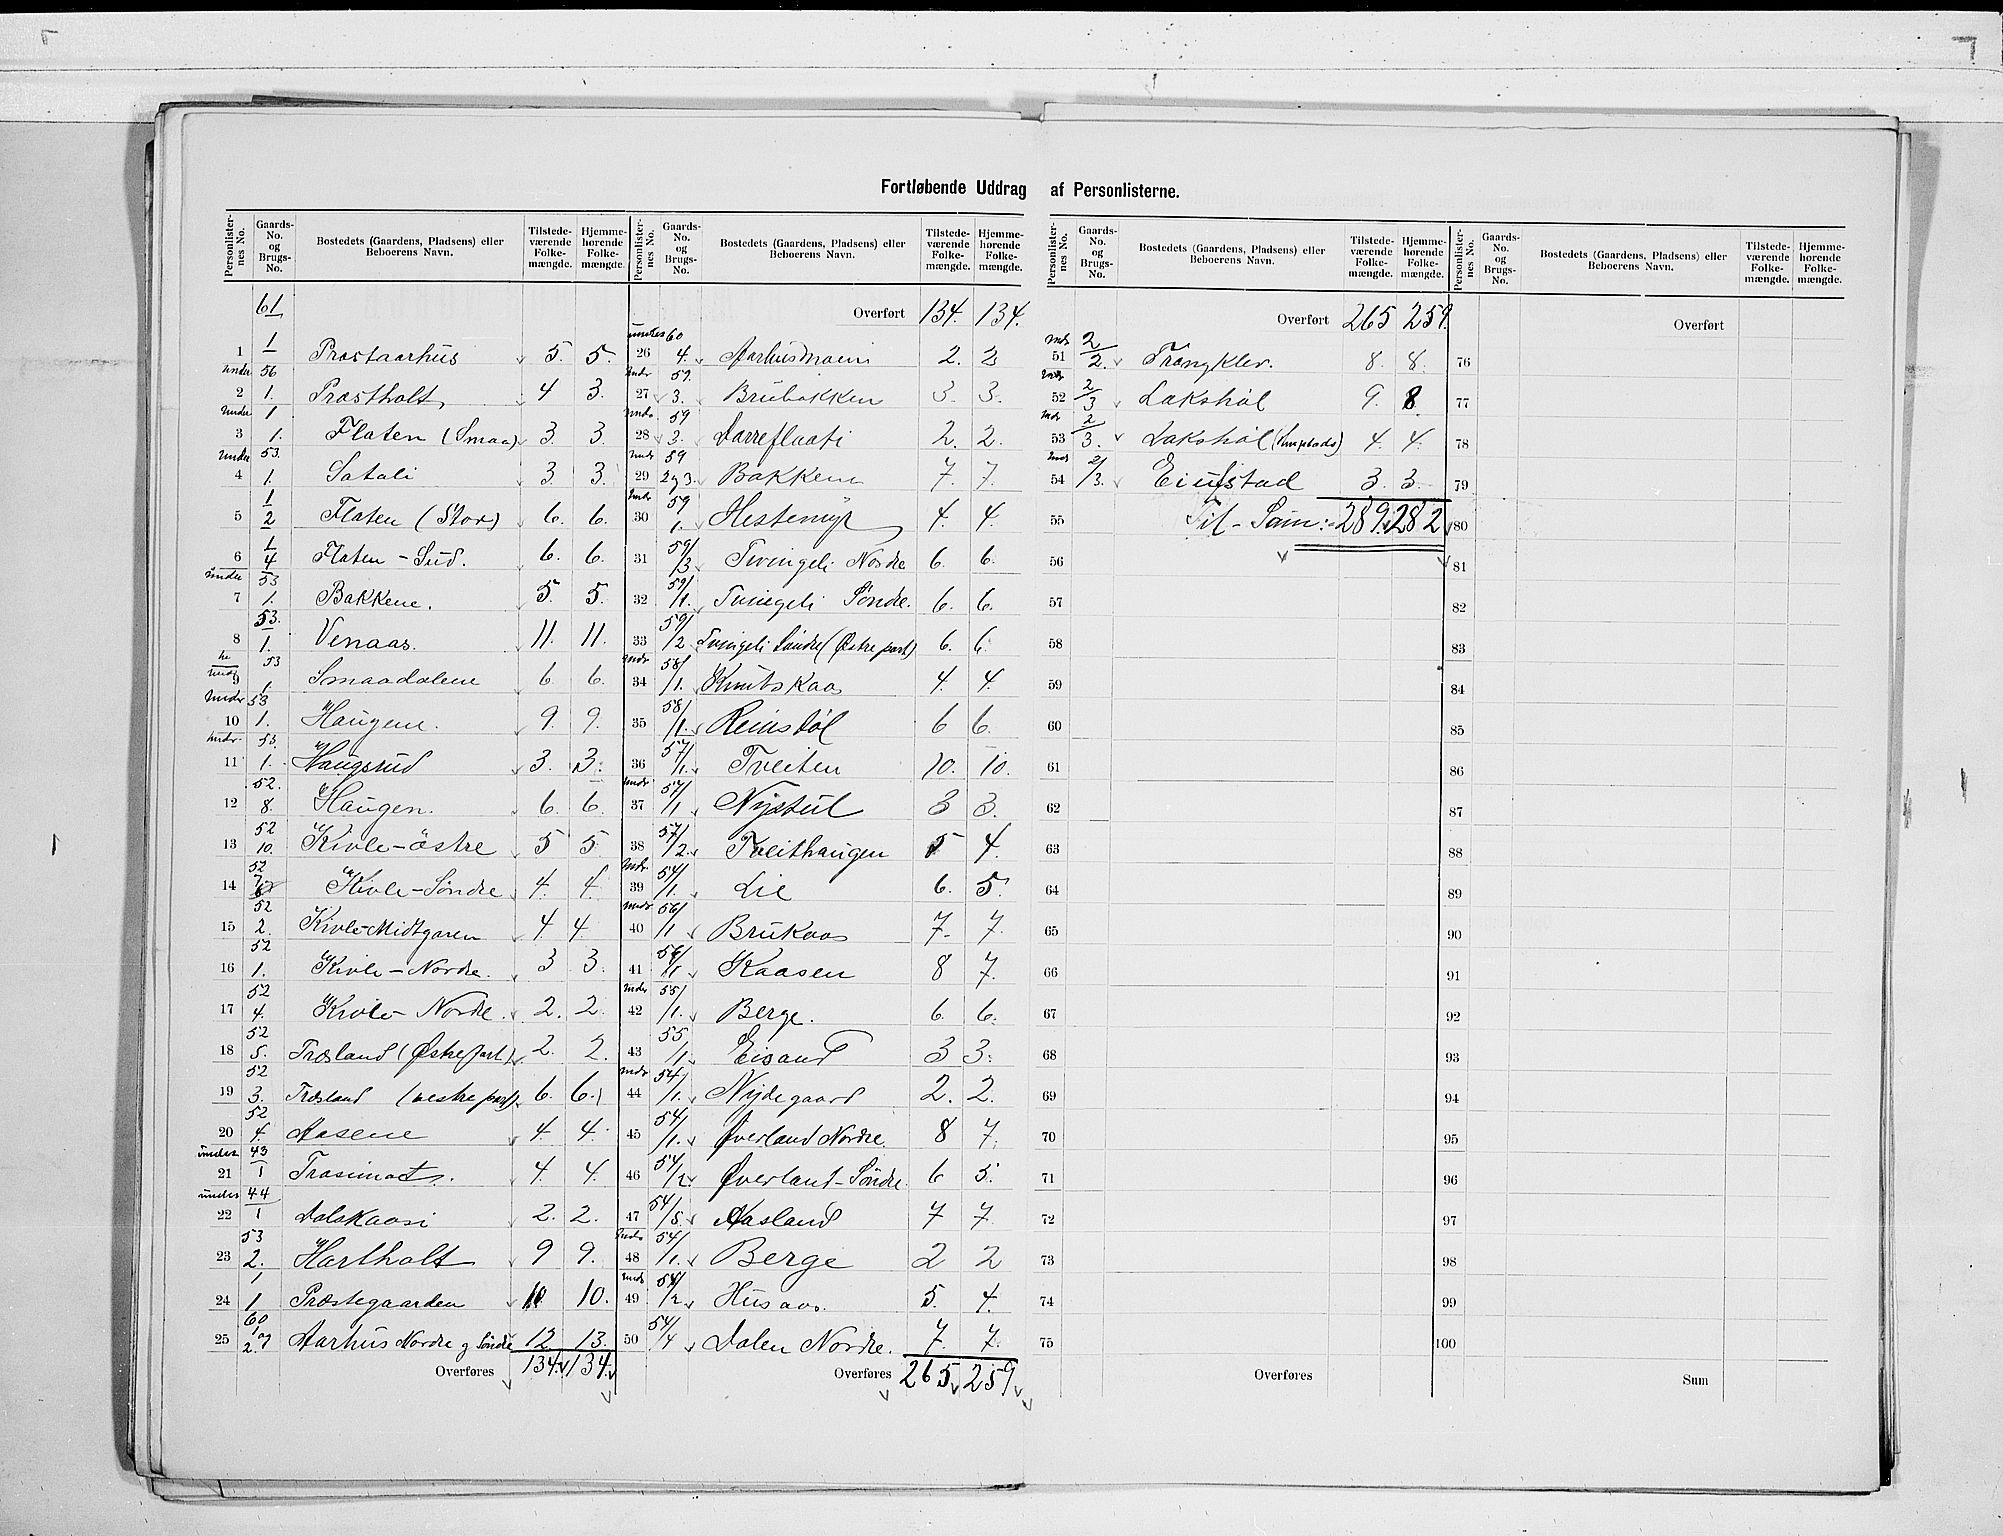 Fortløbende Uddrag af Personlisterne.
Personlister-nes No. Gaards-No. og Brugs-No. Bostedets (Gaardens, Pladsens) eller Beboerens Navn. Tilstede-værende Folke-mængde. Hjemme-hørende Folke-mængde.
61
1 1 Præstaarhus 5. 5.
under 56
2 1. Præstholt 4 3.
under 1
3 1. Flaten (Smaa) 3. 3.
under 53.
4 1. Satali 3. 3.
5 1/2 Flaten (Stor) 6. 6.
6 1/4 Flaten - Sud. 6. 6.
under 53
7 1. Bakkene. 5. 5.
8 53./1. Venaas. 11. 11.
under 53
9 1. Smaadalene 6. 6.
under 53
10 1. Haugene. 9. 9.
undr. 53.
11 1. Haugsrud 3. 3.
12 52./8. Haugen. 6. 6.
13 52/10. Kivle-östre 5 5.
14 52/7 Kivle-Søndre 4. 4.
15 52/2. Kivle-Midtgaren 4 4.
16 52/1. Kivle - Nordre. 3 3.
17 52/4. Kivle - Nordre. 2. 2.
18 52/5. Træland (Østre part) 2. 2.
19 52/3. Træland (vestre part) 6. 6.
20 52/4. Aasene 4. 4.
under 43
21 1 4. 4.
under 44
22 1 Dalskaasi 2. 2.
23 53/2. Hartholt 9 9.
24 1/1. Præstegaarden 10 10.
25 60/1 og 2. Aarhus Nordre og Søndre 12. 13.
Overføres 134. 134.
Personlister-nes No. Gaards-No. og Brugs-No. Bostedets (Gaardens, Pladsens) eller Beboerens Navn. Tilstede-værende Folke-mængde. Hjemme-hørende Folke-mængde.
Overført 134. 134.
under 60
26 4. Aarhusmoein 2. 2
undr 59.
27 3. Brubakken 3. 3.
undr 59
28 3. Darreflaati 2. 2.
undr 59
29 2 og 3. Bakken 7. 7.
undr 59
30 1. Hestemyr 4. 4.
31 59/3 Tvingeli Nordre 6. 6.
32 59/1. Tvingeli Søndre. 6. 6.
33 59/2 Tvingeli Søndre (Østre part) 6. 6.
undr
34 58/1. Knutskaas 4. 4.
35 58/1. Reinsdøl 6 6.
36 57/1. Tveiten 10. 10.
undr
37 57/1 Nystul 3 3.
38 57/2. Tveithaugen 5 4.
undr.
39 54/1. Lie 6. 5.
undr.
40 56/1 Brukaas 7. 7.
41 56/1 Kaasen 8 7.
under
42 55/1. Berge. 6. 6.
43 55/1. Eisand 3 3.
undr
44 54/1. Nydegaard 2. 2.
45 54/1. Øverland Nordre. 8 7.
46 54/2. Øverland - Søndre. 6 5.
47 54/5. Aasland 7 7.
undr
48 54/1. Berge 2 2
undr
49 54/2. Husaas. 5. 4.
50 54/4 Dalen Nordre. 7. 7.
Overføres 265. 259
Personlister-nes No. Gaards-No. og Brugs-No. Bostedets (Gaardens, Pladsens) eller Beboerens Navn. Tilstede-værende Folke-mængde. Hjemme-hørende Folke-mængde.
Overført 265 259.
undr
51 2/2. Trangklev. 8. 8.
undr
52 2/3 Lakshøl 9. 8.
undr
53 2/3. Lakshøl 4. 4.
undr
54 2/3. Eiustad 3. 3.
55 Til - Sam:- 289. 282
56
57
58
59
60
61
62
63
64
65
66
67
68
69
70
71
72
73
74
75
Overføres
Personlister-nes No. Gaards-No. og Brugs-No. Bostedets (Gaardens, Pladsens) eller Beboerens Navn. Tilstede-værende Folke-mængde. Hjemme-hørende Folke-mængde.
Overført
76
77
78
79
80
81
82
83
84
85
86
87
88
89
90
91
92
93
94
95
96
97
98
99
100
Sum